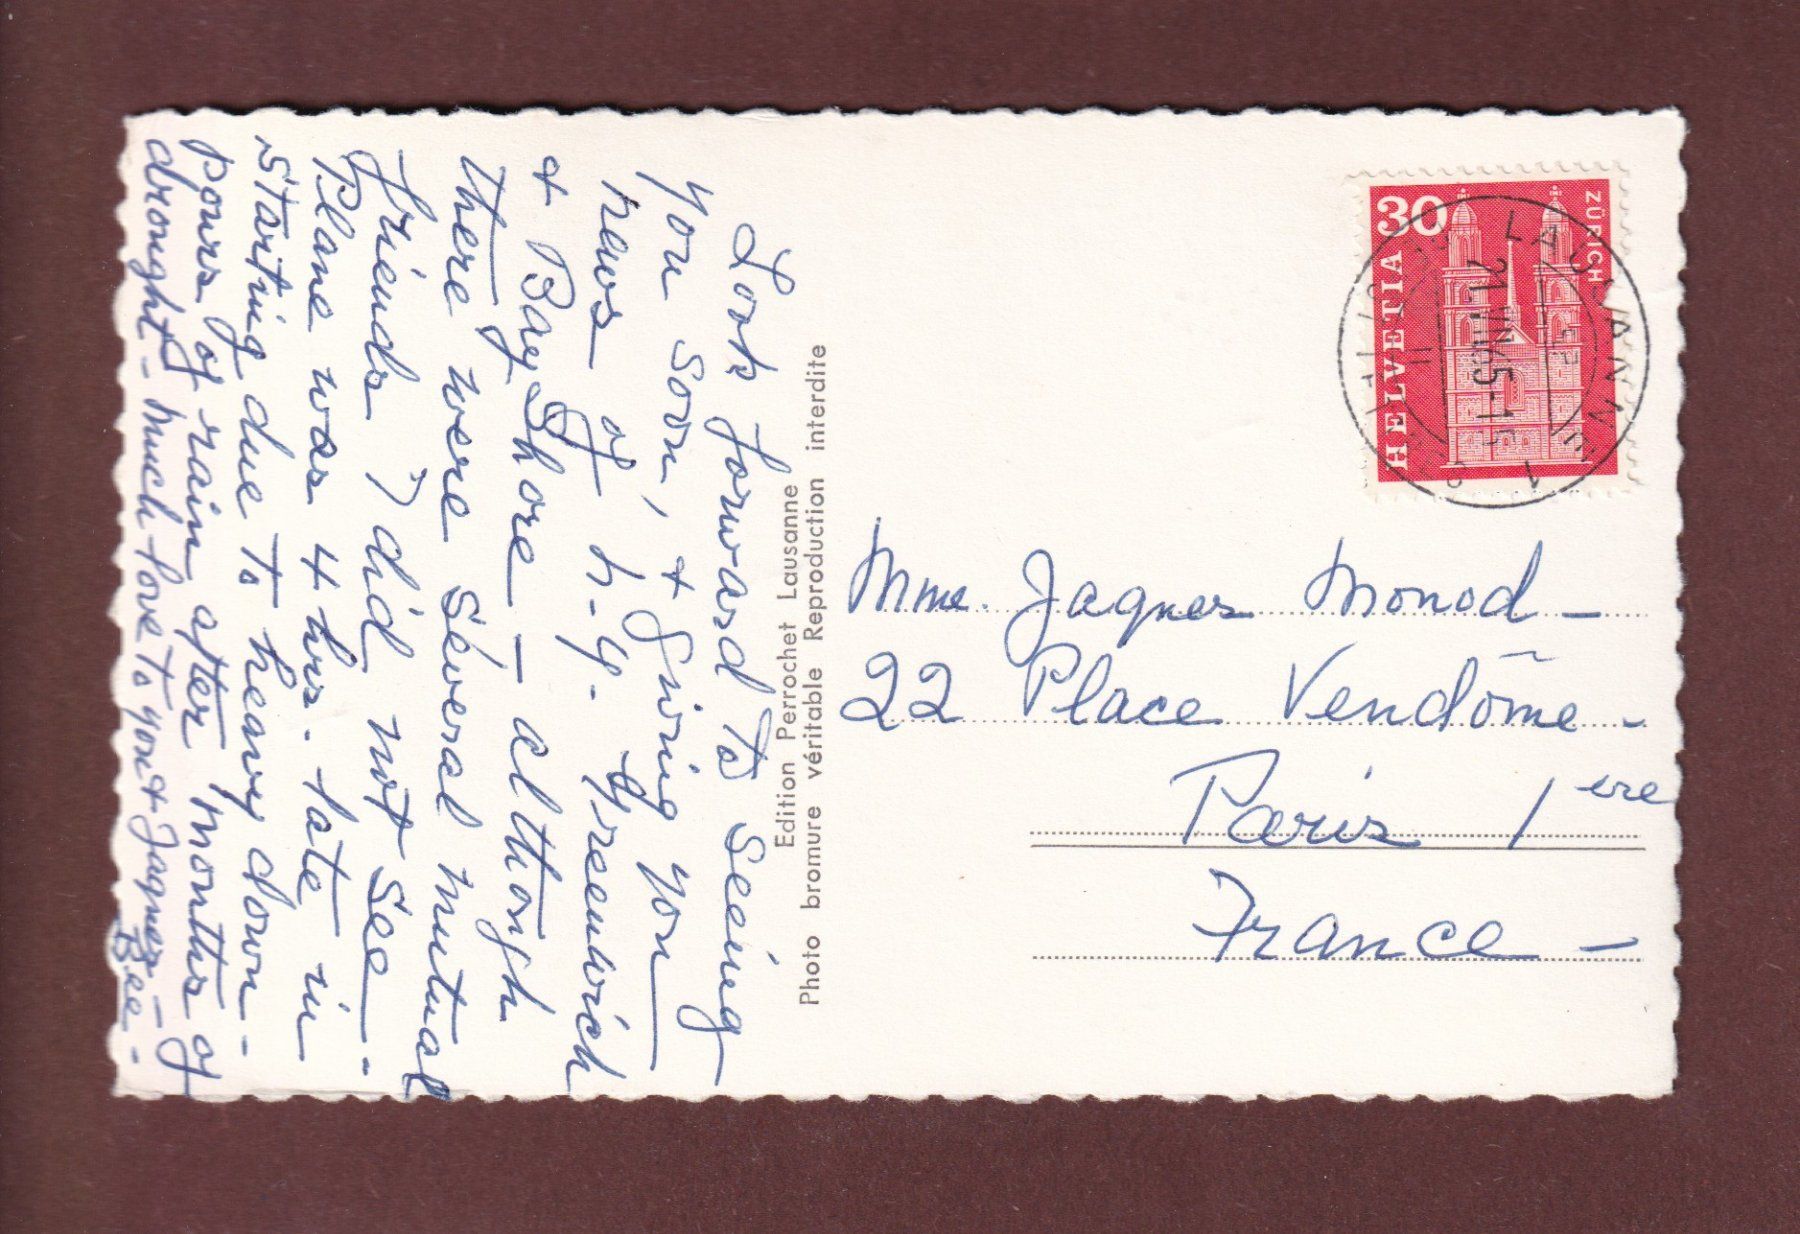 Look forward to seeing
you soon, + giving you
news of N.Y. Greenwich
+ Bay Shore - although
there were several mutual
friends I did not see -
Plane was 4 hrs. late in
starting due to heavy down-
pours of rain after months of
drought - Much love to you + Jaques -
Bee -
Edition Perrochet Lausanne
Photo bromure véritable Reproduction interdite
30
HELVETIA
ZÜRICH
LAUSANNE 1
Mme. Jaques Monod -
22 Place Vendôme -
Paris 1ere
France -